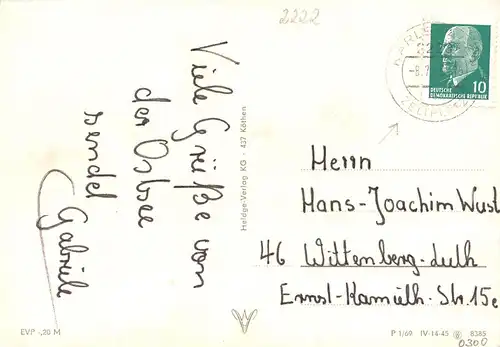 2222
Viele Grüße von
der Ostsee
sendet
Gabriele
Heldge-Verlag KG · 437 Köthen
KARLS
ZELTPL
10
DEUTSCHE
DEMOKRATISCHE REPUBLIK
Herrn
Hans-Joachim Wust
46 Wittenberg-Luth
Ernst-Kamuth-Str. 15e
EVP -,20 M
P 1/69 IV-14-45 8385
0300